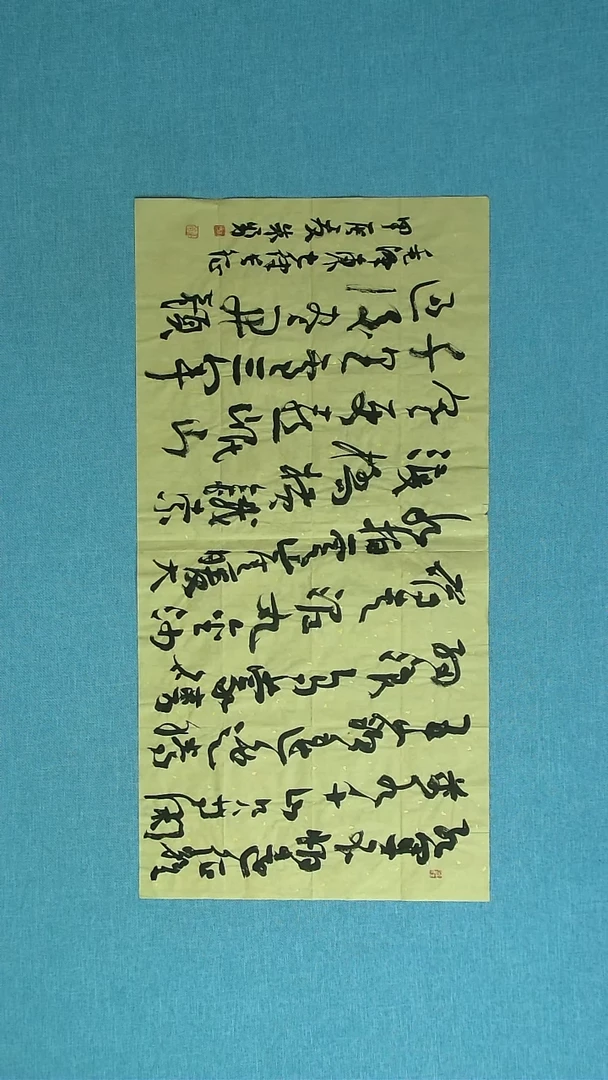 红軍不怕遠征難
萬水千山只等闲
五嶺逶迤腾
细浪乌蒙磅
礴走泥丸金沙
水拍雲崖暖大
渡橋横鐵索
寒更喜岷山
千里雪三军
过後尽开颜
毛澤東七律长征
甲辰夏